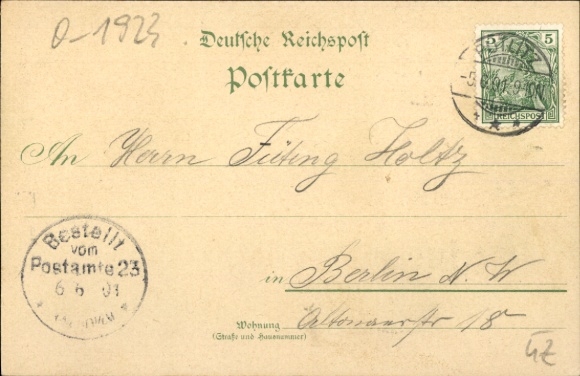 O-1923
Deutsche Reichspost
Postkarte
5 5
REICHSPOST
An Herrn Füting Holtz
Bestellt
vom
Postamte 23
6 6 01
in Berlin N. W.
Wohnung Altonaerstr 18
(Straße und Hausnummer)